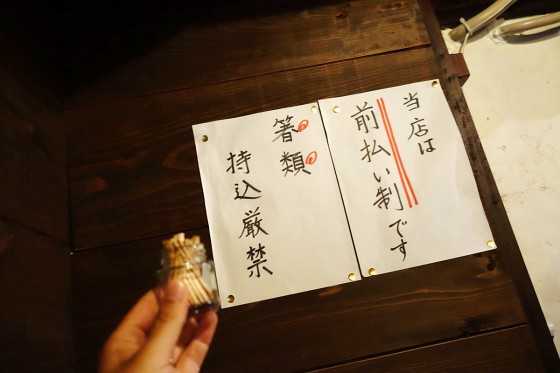 当店は
前払い制です
箸類
持込厳禁